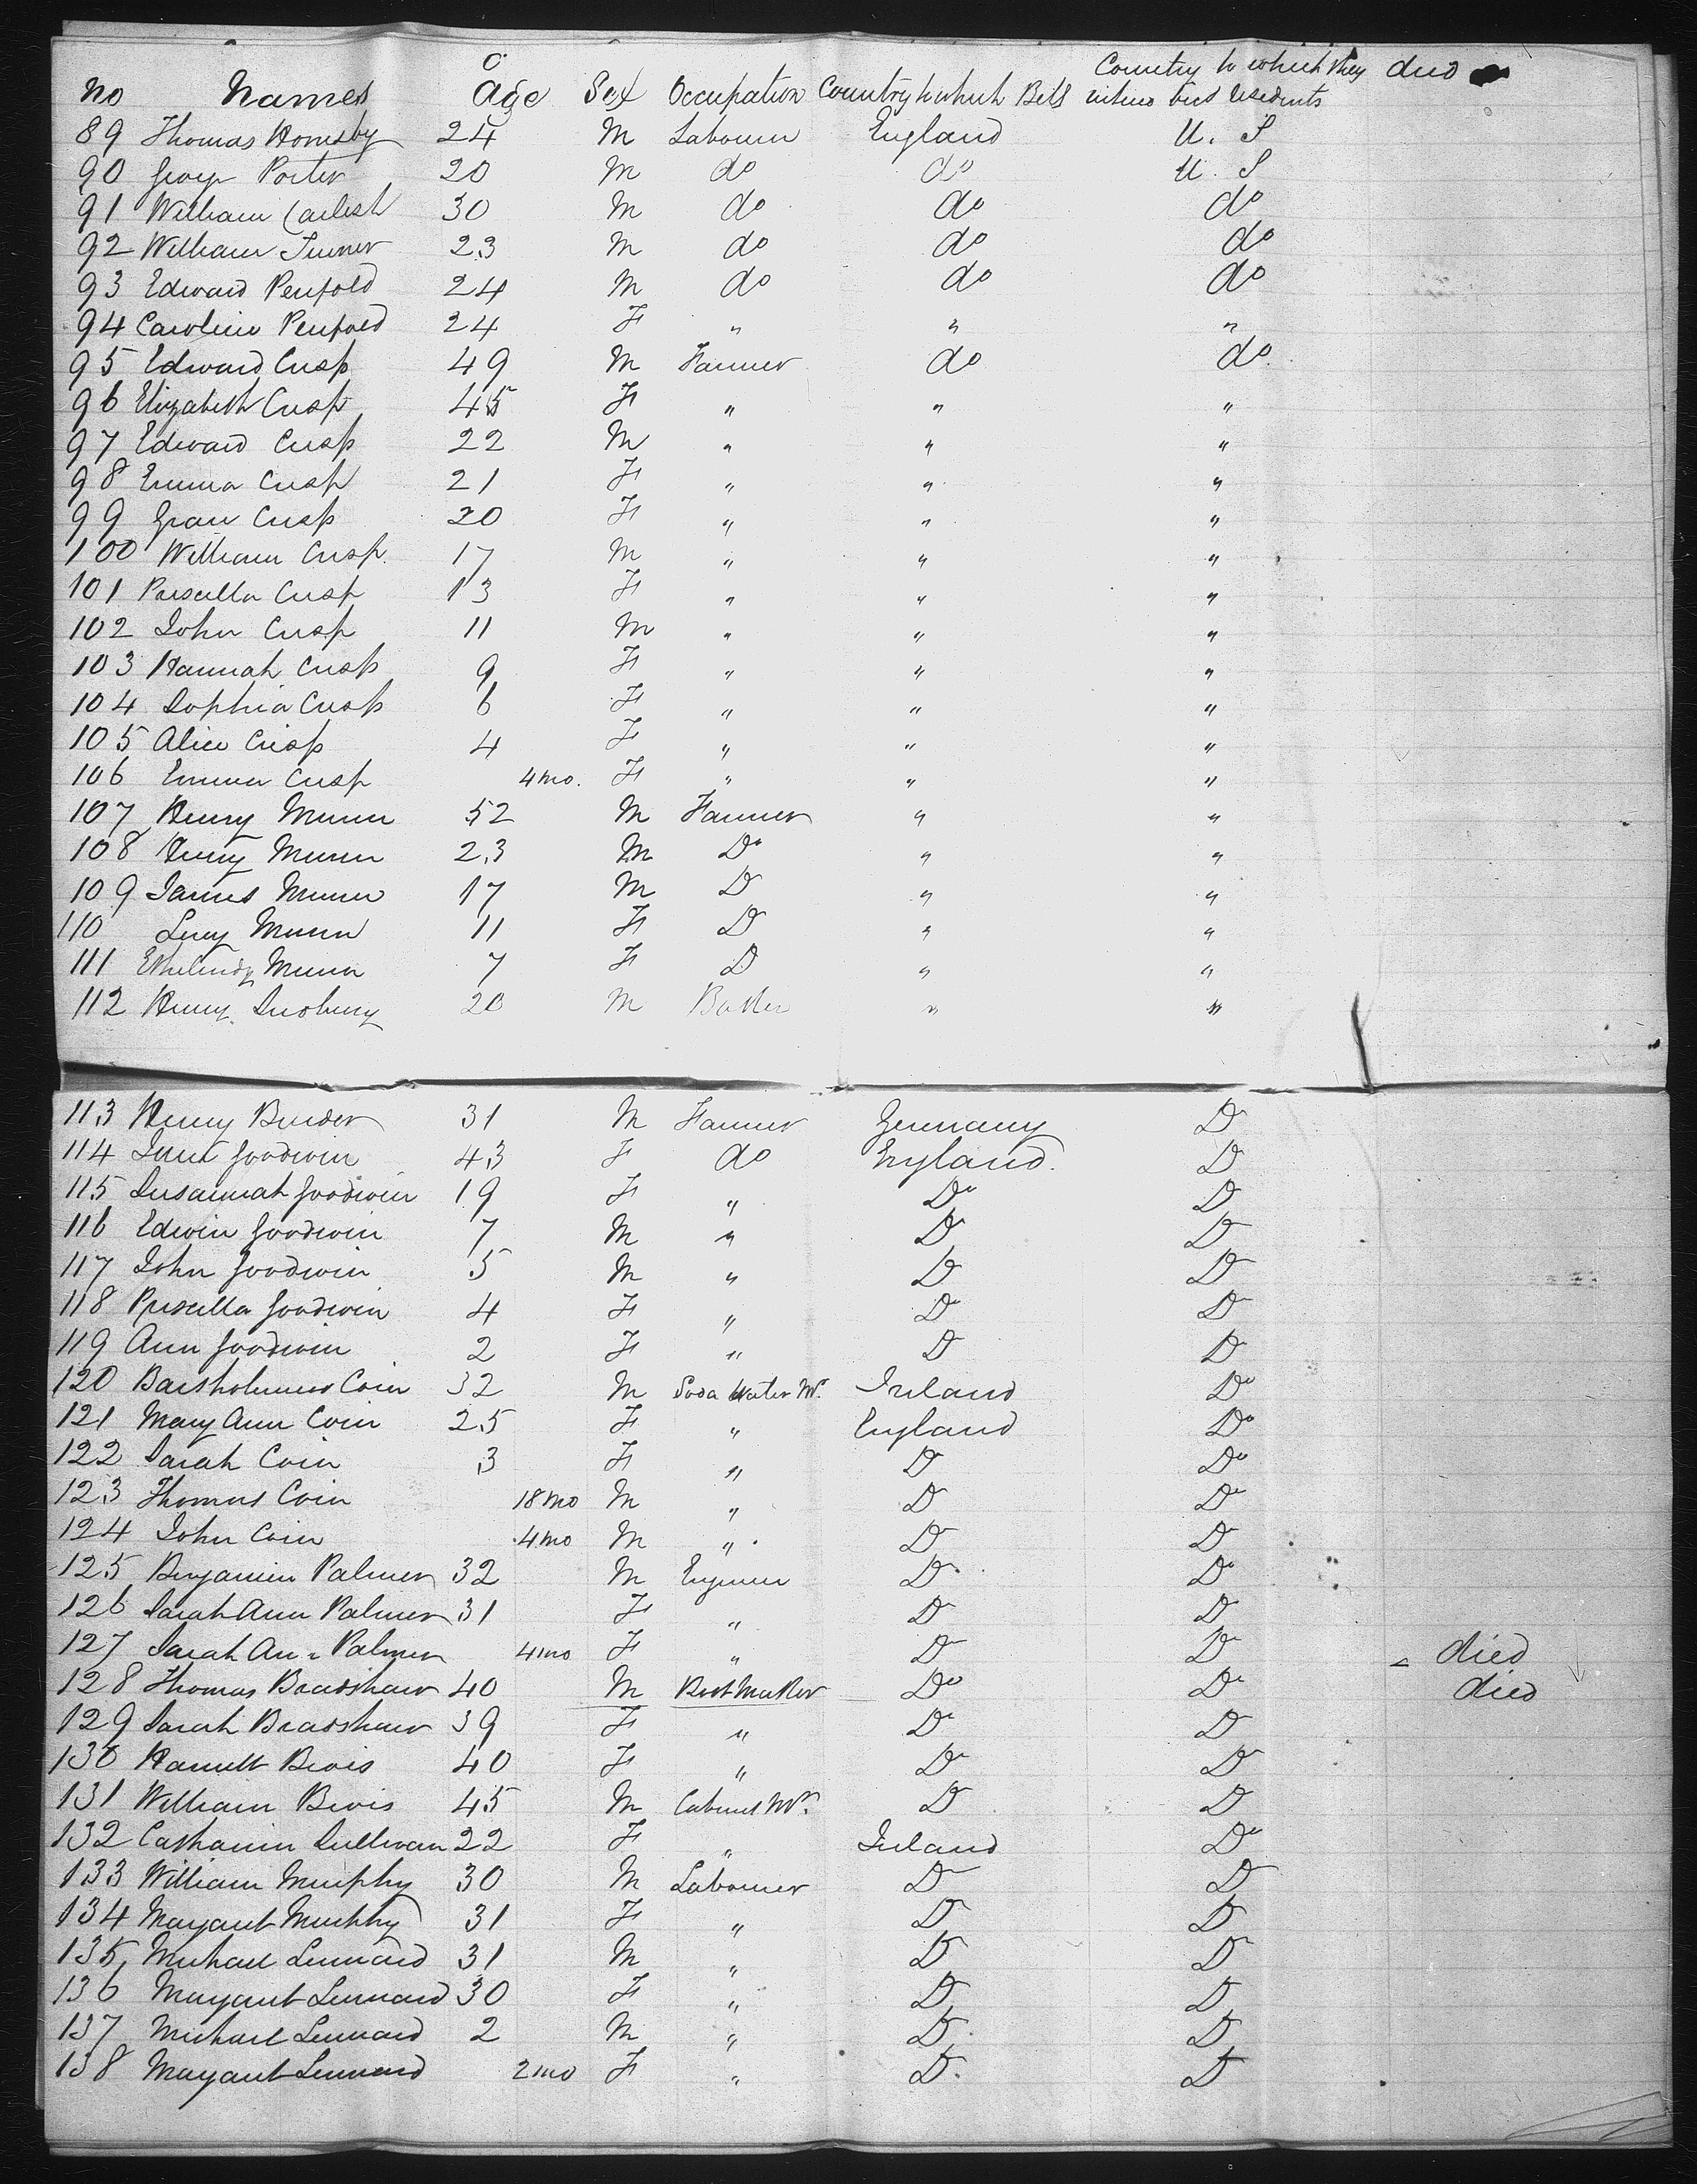 No Names Age Sex Occupation Country to which Bels Country to which they intend bees residents died
89 Thomas Hornsby 24 M Labourer England U. S
90 George Porter 20 M do do U. S
91 William Carlish 30 M do do do
92 William Turner 23 M do do do
93 Edward Penfold 24 M do do do
94 Caroline Penfold 24 F " " "
95 Edward Crisp 49 M Farmer do do
96 Elizabeth Crisp 45 F " " "
97 Edward Crisp 22 M " " "
98 Emma Crisp 21 F " " "
99 Grace Crisp 20 F " " "
100 William Crisp 17 M " " "
101 Priscilla Crisp 13 F " " "
102 John Crisp 11 M " " "
103 Hannah Crisp 9 F " " "
104 Sophia Crisp 6 F " " "
105 Alice Crisp 4 F " " "
106 Emma Crisp 4 mo. F " " "
107 Henry Munn 52 M Farmer " "
108 Henry Munn 23 M Do " "
109 James Munn 17 M D " "
110 Lucy Munn 11 F D " "
111 Munn 7 F D " "
112 Henry 20 M " "
113 Henry Binder 31 M Farmer Germany D
114 Goodwin 43 F do England. D
115 Susannah Goodwin 19 F " Do D
116 Edwin Goodwin 7 M " D D
117 John Goodwin 5 M " D D
118 Priscilla Goodwin 4 F " D D
119 Ann Goodwin 2 F " D D
120 Bartholomew Coin 32 M Soda Water Mr. Ireland Do
121 Mary Ann Coin 25 F " England Do
122 Sarah Coin 3 F " D Do
123 Thomas Coin 18 mo M " D Do
124 John Coin 4 mo M " D D
125 Benjamin Palmer 32 M Engineer D Do
126 Sarah Ann Palmer 31 F " D D
127 Sarah Ann Palmer 4 mo F " D D died
128 Thomas Bradshaw 40 M Boot Maker Do Do died
129 Sarah Bradshaw 39 F " D D
130 Harriett Bevis 40 F " D D
131 William Bevis 45 M Cabinet Mr. D D
132 Catharine Sullivan 22 F " Ireland Do
133 William Murphy 30 M Labourer D D
134 Margaret Murphy 31 F " D D
135 Michael Lennard 31 M " D D
136 Margaret Lennard 30 F " D D
137 Michael Lennard 2 M " D D
138 Margaret Lennard 2 mo F " D. D